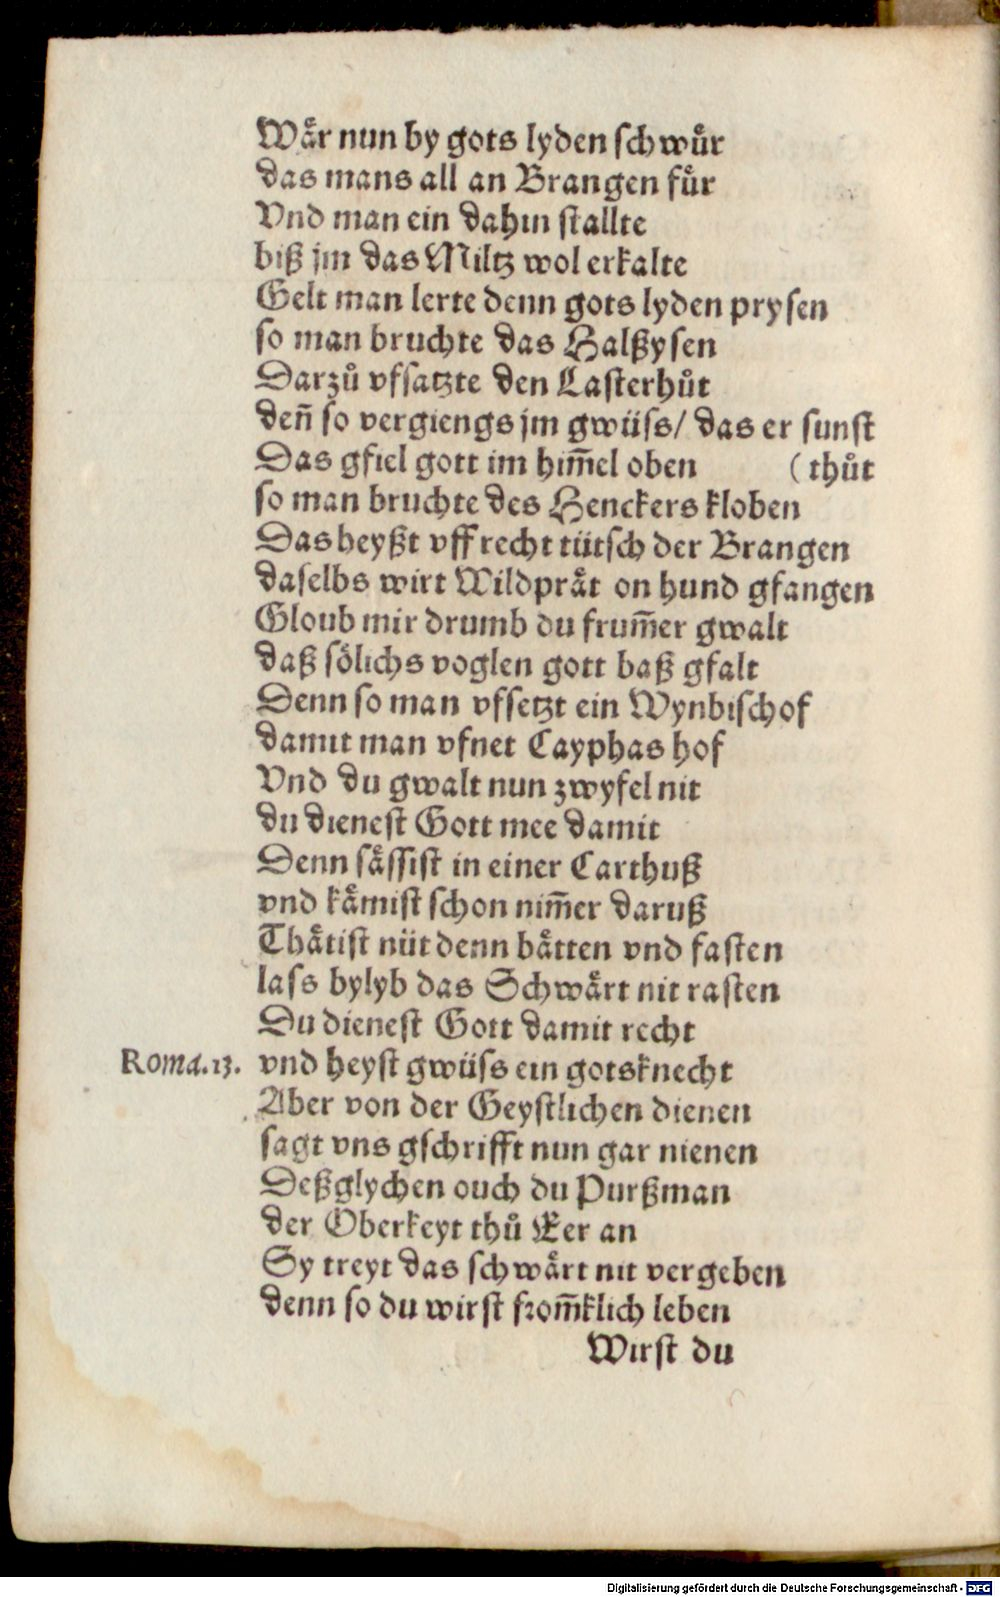 Wår nun by gots lyden schwůr
das mans all an Brangen fůr
Vnd man ein dahin stallte
biß jm das Miltz wol erkalte
Gelt man lerte denn gots lyden prysen
so man bruchte das Halßysen
Darzů vfsatzte den Lasterhůt
deñ so vergiengs jm gwüss/ das er sunst
Das gfiel gott im him̄el oben (thůt
so man bruchte des Henckers kloben
Das heyßt vff recht tütsch der Brangen
daselbs wirt Wildpråt on hund gfangen
Gloub mir drumb du frum̄er gwalt
daß sölichs voglen gott baß gfalt
Denn so man vfsetzt ein Wynbischof
damit man vfnet Cayphas hof
Vnd du gwalt nun zwyfel nit
du dienest Gott mee damit
Denn såssist in einer Carthuß
vnd kåmist schon nim̄er daruß
Thåtist nüt denn båtten vnd fasten
lass bylyb das Schwårt nit rasten
Du dienest Gott damit recht
Roma.13. vnd heyst gwüss ein gotsknecht
Aber von der Geystlichen dienen
sagt vns gschrifft nun gar nienen
Deßglychen ouch du Purßman
der Oberkeyt thů Eer an
Sy treyt das schwårt nit vergeben
denn so du wirst from̄klich leben
Wirst du
Digitalisierung gefördert durch die Deutsche Forschungsgemeinschaft - DFG